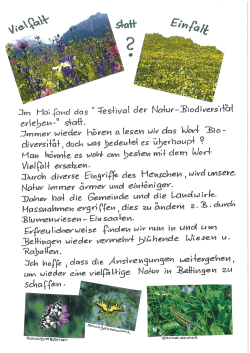 Vielfalt statt Einfalt
?
Im Mai fand das "Festival der Natur-Biodiversität
erleben-" statt.
Immer wieder hören & lesen wir das Wort Bio-
diversität, doch was bedeutet es überhaupt?
Man könnte es wohl am besten mit dem Wort
Vielfalt ersetzen.
Durch diverse Eingriffe des Menschen, wird unsere
Natur immer ärmer und eintöniger.
Daher hat die Gemeinde und die Landwirte
Massnahmen ergriffen, dies zu ändern z.B. durch
Blumenwiesen-Einsaaten.
Erfreulicherweise finden wir nun in und um
Bettingen wieder vermehrt blühende Wiesen u.
Rabatten.
Ich hoffe, dass die Anstrengungen weitergehen,
um wieder eine vielfältige Natur in Bettingen zu
schaffen.